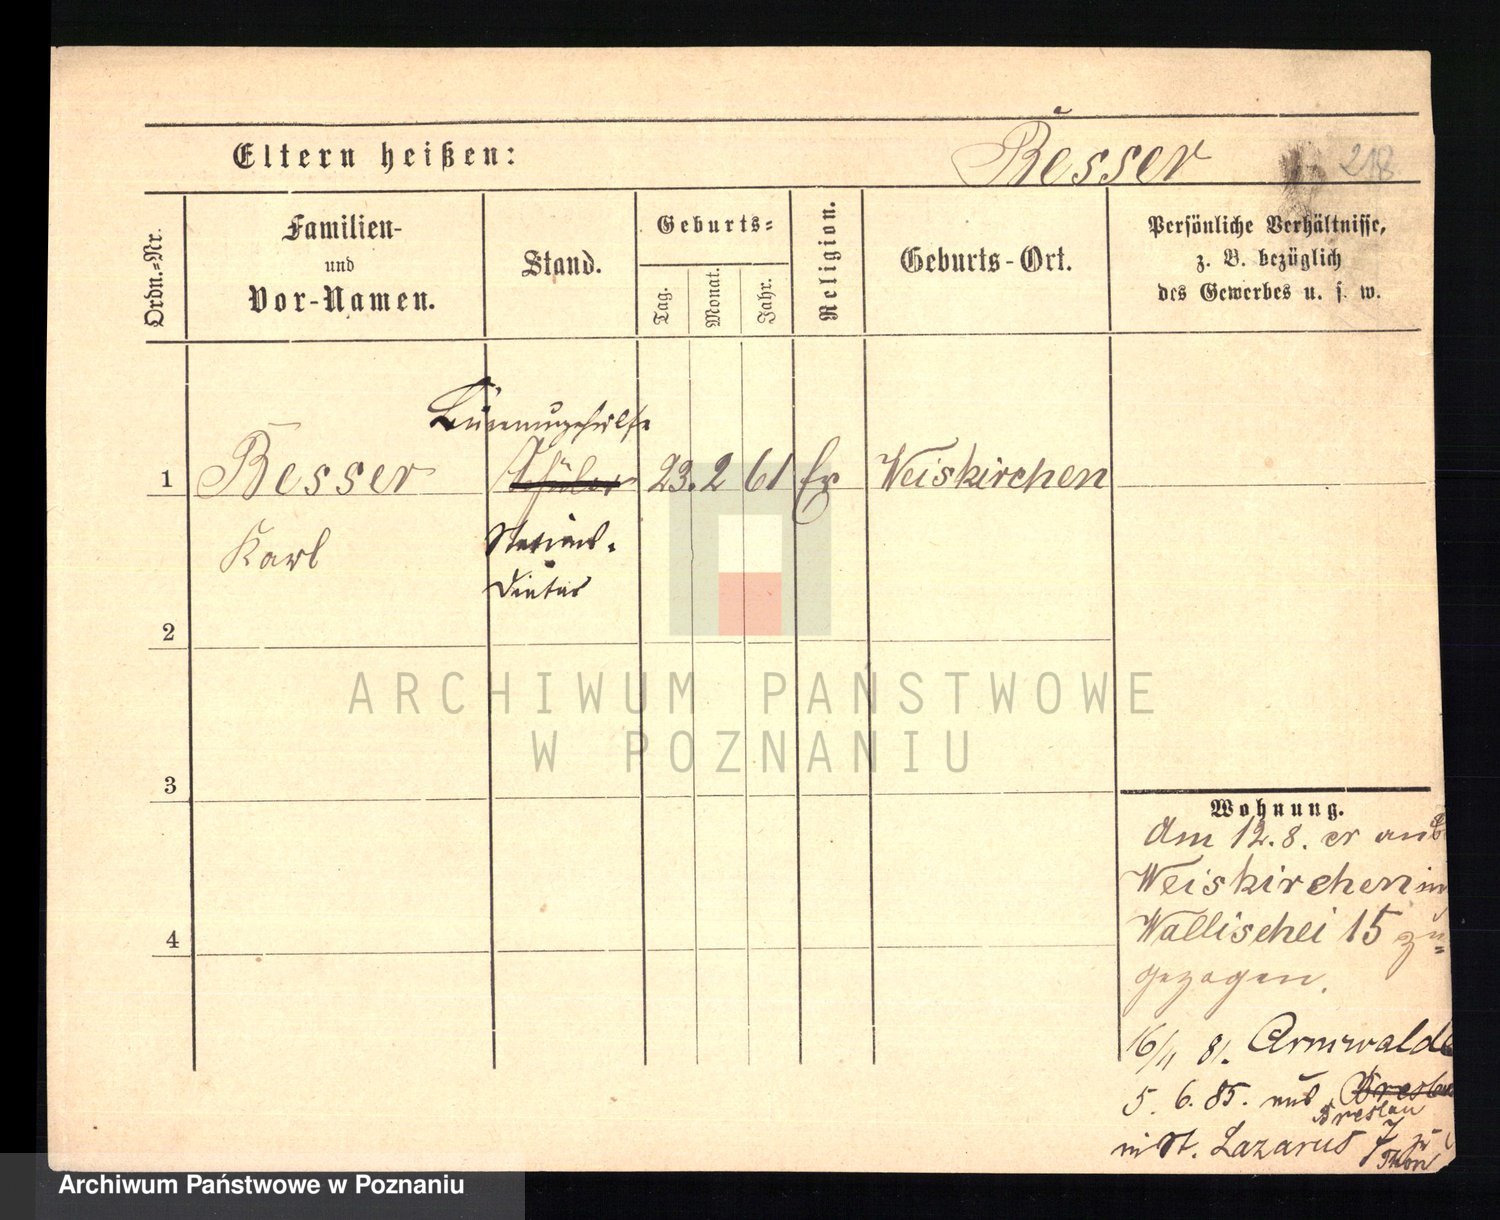 Eltern heißen:
Besser
218
Ordn.-Nr.
Familien-
und
Vor-Namen.
Stand.
Geburts-
Tag.
Monat.
Jahr.
Religion.
Geburts-Ort.
Persönliche Verhältnisse,
z. B. bezüglich
des Gewerbes u. s. w.
Büreaugehülfe
1 Besser Schüler 23. 2 61 Ev Weiskirchen
Karl Stations-
Diätar
2
3
4
Wohnung.
Am 12. 8. er aus
Weiskirchen in
Wallischei 15 zu=
gezogen.
16/11 81. Arnswalde
5. 6. 85. aus Breslau
Breslau
in St. Lazarus 7 zu
Thorn
ARCHIWUM PAŃSTWOWE
W POZNANIU
Archiwum Państwowe w Poznaniu